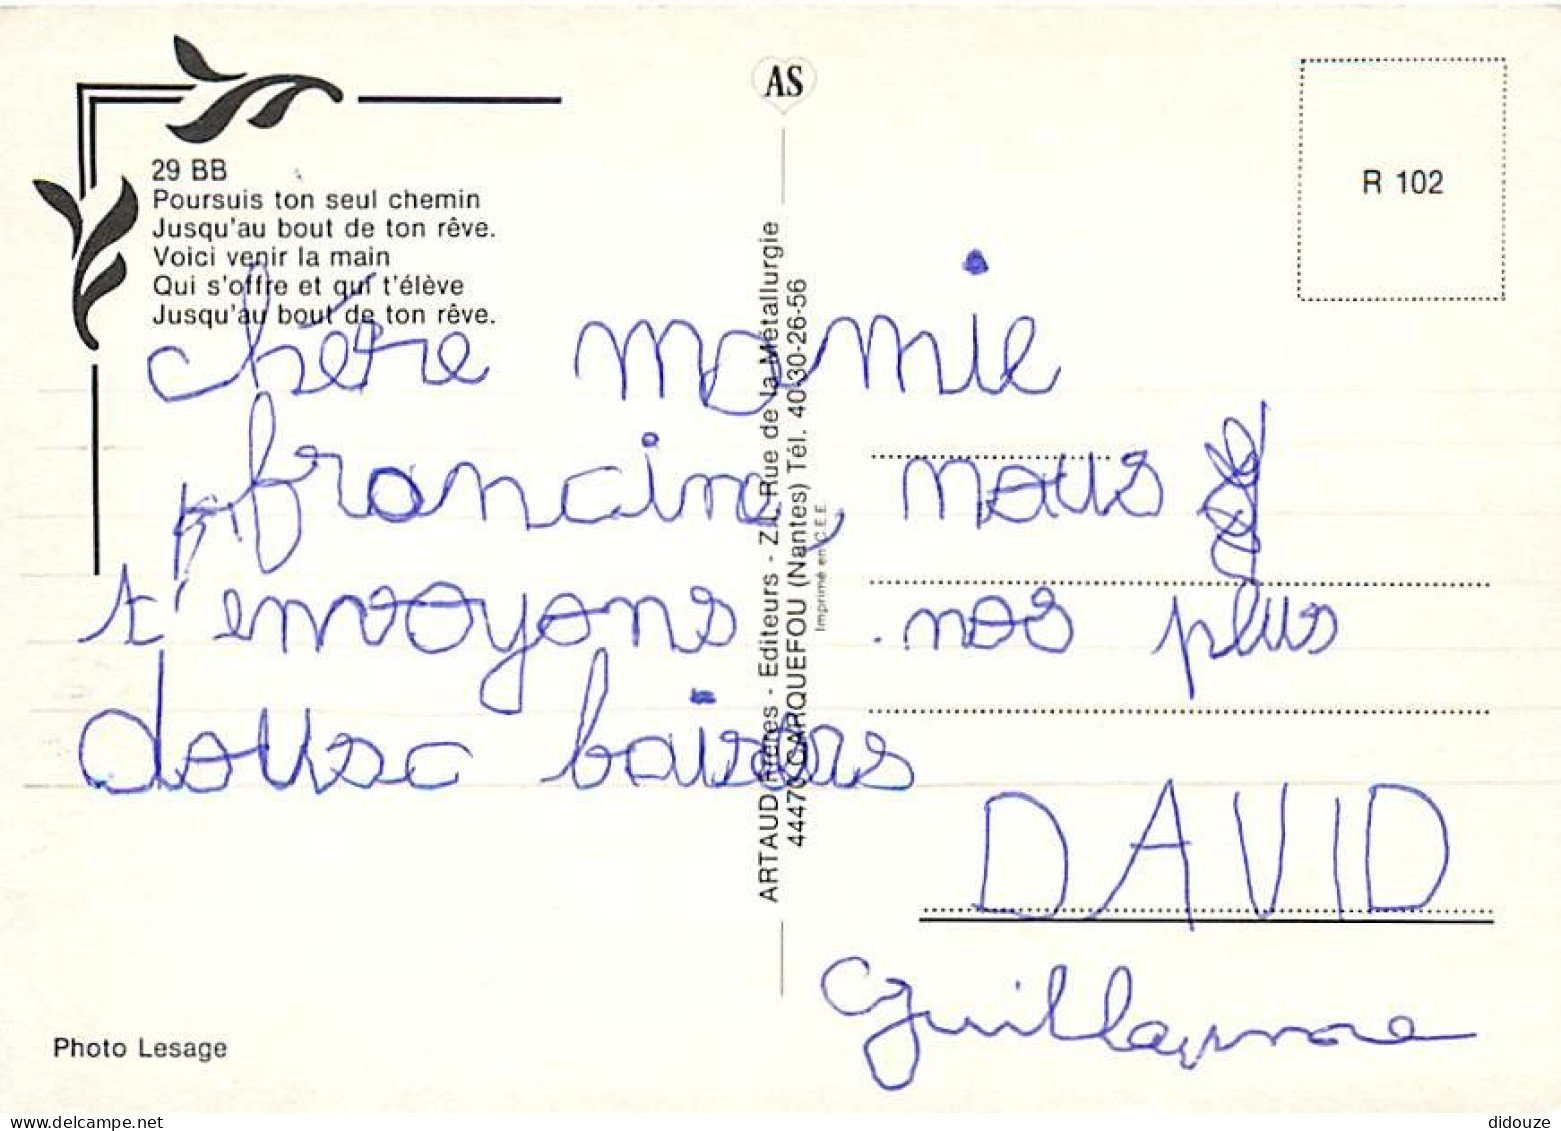 AS
29 BB
Poursuis ton seul chemin
Jusqu'au bout de ton rêve.
Voici venir la main
Qui s'offre et qui t'élève
Jusqu'au bout de ton rêve.
R 102
chère mamie
francine, nous
t'envoyons nos plus
dousc baisers
DAVID
Guillaume
ARTAUD Frères - Editeurs - Z.I. Rue de la Métallurgie
44470 CARQUEFOU (Nantes) Tél. 40-30-26-56
Imprimé en C.E.E.
Photo Lesage
delcampe.net
didouze